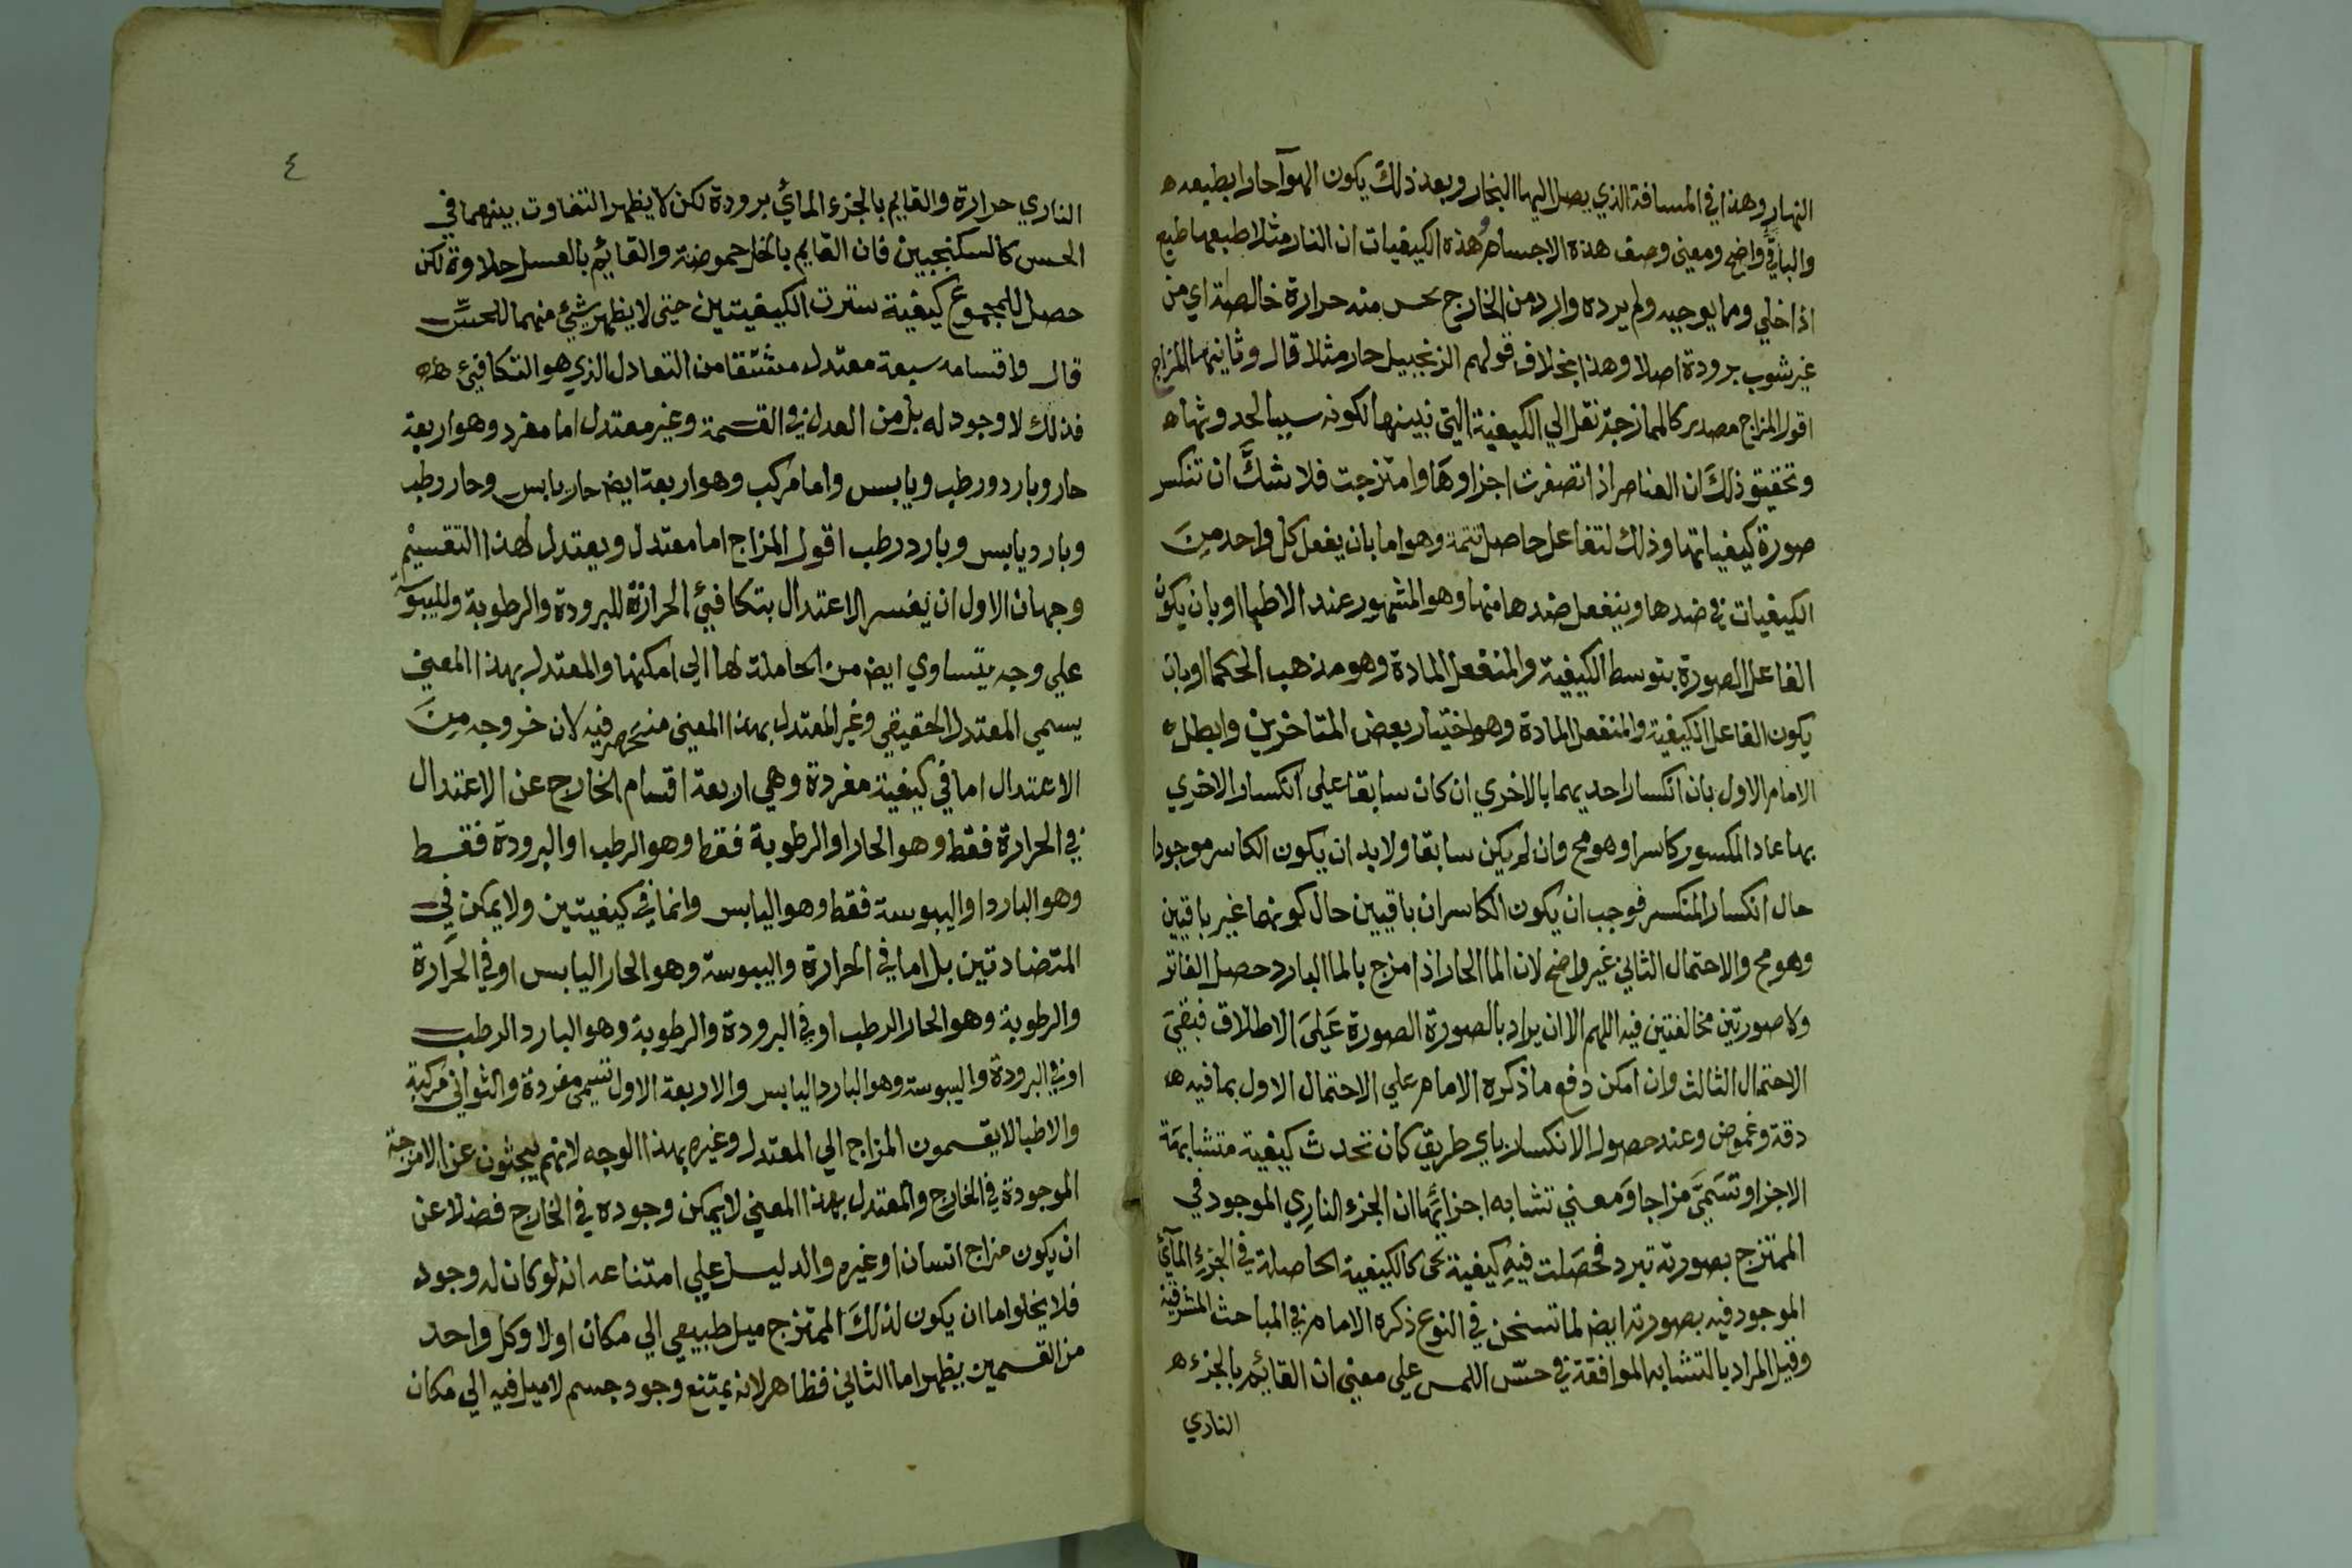 النهار وهذا في المسافة الذي يصل اليها البخار وبعد ذلك يكون الهوآ حارا بطبعه ه
والباقي واضح ومعنى وصف هذه الاجسام بهذه الكيفيات ان النار مثلا طبعها طبع
اذا خلي وما يوجبه ولم يرده وارد من الخارج يحس منه حرارة خالصة اي من
غير شوب برودة اصلا وهذا بخلاف قولهم الزنجبيل حار مثلا قال وثانيها المزاج
اقول المزاج مصدر كالممازجة نقل الي الكيفية التي نبينها لكونه سببا لحدوثها ه
وتحقيق ذلك ان العناصر اذا تصغرت اجزاوها وامتزجت فلا شك ان تنكسر
صورة كيفياتها وذلك لتفاعل حاصل ثمة وهو اما بان يفعل كل واحد من
الكيفيات في ضدها وينفعل ضدها منها وهو المشهور عند الاطبا او بان يكون
الفاعل الصورة بتوسط الكيفية والمنفعل المادة وهو مذهب الحكما او بان
يكون الفاعل الكيفية والمنفعل المادة وهو اختيار بعض المتاخرين وابطل ه
الامام الاول بان انكسار احديهما بالاخري ان كان سابقا علي انكسار الاخري
بها عاد المكسور كاسرا وهو مح وان لم يكن سابقا ولابد ان يكون الكاسر موجودا
حال انكسار المنكسر فوجب ان يكون الكاسران باقيين حال كونهما غير باقيين
وهو مح والاحتمال الثاني غير واضح لان الما الحار اذا مزج بالما البارد حصل الفاتر
ولا صورتين مخالفتين فيه اللهم الا ان يراد بالصورة الصورة على الاطلاق فبقي
الاحتمال الثالث وان امكن دفع ما ذكره الامام علي الاحتمال الاول بما فيه ه
دقة وغموض وعند حصول الانكسار باي طريق كان تحدث كيفية متشابهة
الاجزا وتسمى مزاجا ومعني تشابه اجزائها ان الجزء الناري الموجود في
الممتزج بصورته تبرد فحصلت فيه كيفية هي كالكيفية الحاصلة في الجزء المآئي
الموجود فيه بصورته ايض لما تسخن في النوع ذكره الامام في المباحث المشرقية
وقيل المراد بالتشابه الموافقة في حس اللمس علي معني ان القائم بالجزء ه
الناري
٤
الناري حرارة والقايم بالجزء المائي برودة لكن لا يظهر التفاوت بينهما في
الحس كالسكنجبين فان القايم بالخل حموضة والقائم بالعسل حلاوة لكن
حصل للمجموع كيفية سترت الكيفيتين حتى لا يظهر شئ منهما للحس
قال واقسامه سبعة معتدل مشتقا من التعادل الذي هو التكافئ
فذلك لا وجود له بل من العدل في القسمة وغير معتدل اما مفرد وهو اربعة
حار وبارد ورطب ويابس واما مركب وهو اربعة ايض حار يابس وحار رطب
وبارد يابس وبارد رطب اقول المزاج اما معتدل ويعتدل لهذا التقسيم
وجهان الاول ان يفسر الاعتدال بتكافئ الحرارة للبرودة والرطوبة ولليبوسة
علي وجه يتساوي ايض من الحاملة لها الي امكنها والمعتدل بهذا المعني
يسمي المعتدل الحقيقي وغير المعتدل بهذا المعنى منحصر فيه لان خروجه من
الاعتدال اما في كيفية مفردة وهي اربعة اقسام الخارج عن الاعتدال
في الحرارة فقط وهو الحار او الرطوبة فقط وهو الرطب او البرودة فقط
وهو البارد او اليبوسة فقط وهو اليابس وانما في كيفيتين ولا يمكن في
المتضادتين بل اما في الحرارة واليبوسة وهو الحار اليابس او في الحرارة
والرطوبة وهو الحار الرطب او في البرودة والرطوبة وهو البارد الرطب
او في البرودة واليبوسة وهو البارد اليابس والاربعة الاول تسمى مفردة والثواني مركبة
والاطبا لا يقسمون المزاج الي المعتدل وغيره بهذا الوجه لانهم يبحثون عن الامزجة
الموجودة في الخارج والمعتدل بهذا المعني لا يمكن وجوده في الخارج فضلا عن
ان يكون مزاج انسان او غيره والدليل علي امتناعه انه لو كان له وجود
فلا يخلوا اما ان يكون لذلك الممتزج ميل طبيعي الي مكان اولا وكل واحد
من القسمين يظهر اما الثاني فظاهر لانه يمتنع وجود جسم لا ميل فيه الي مكان